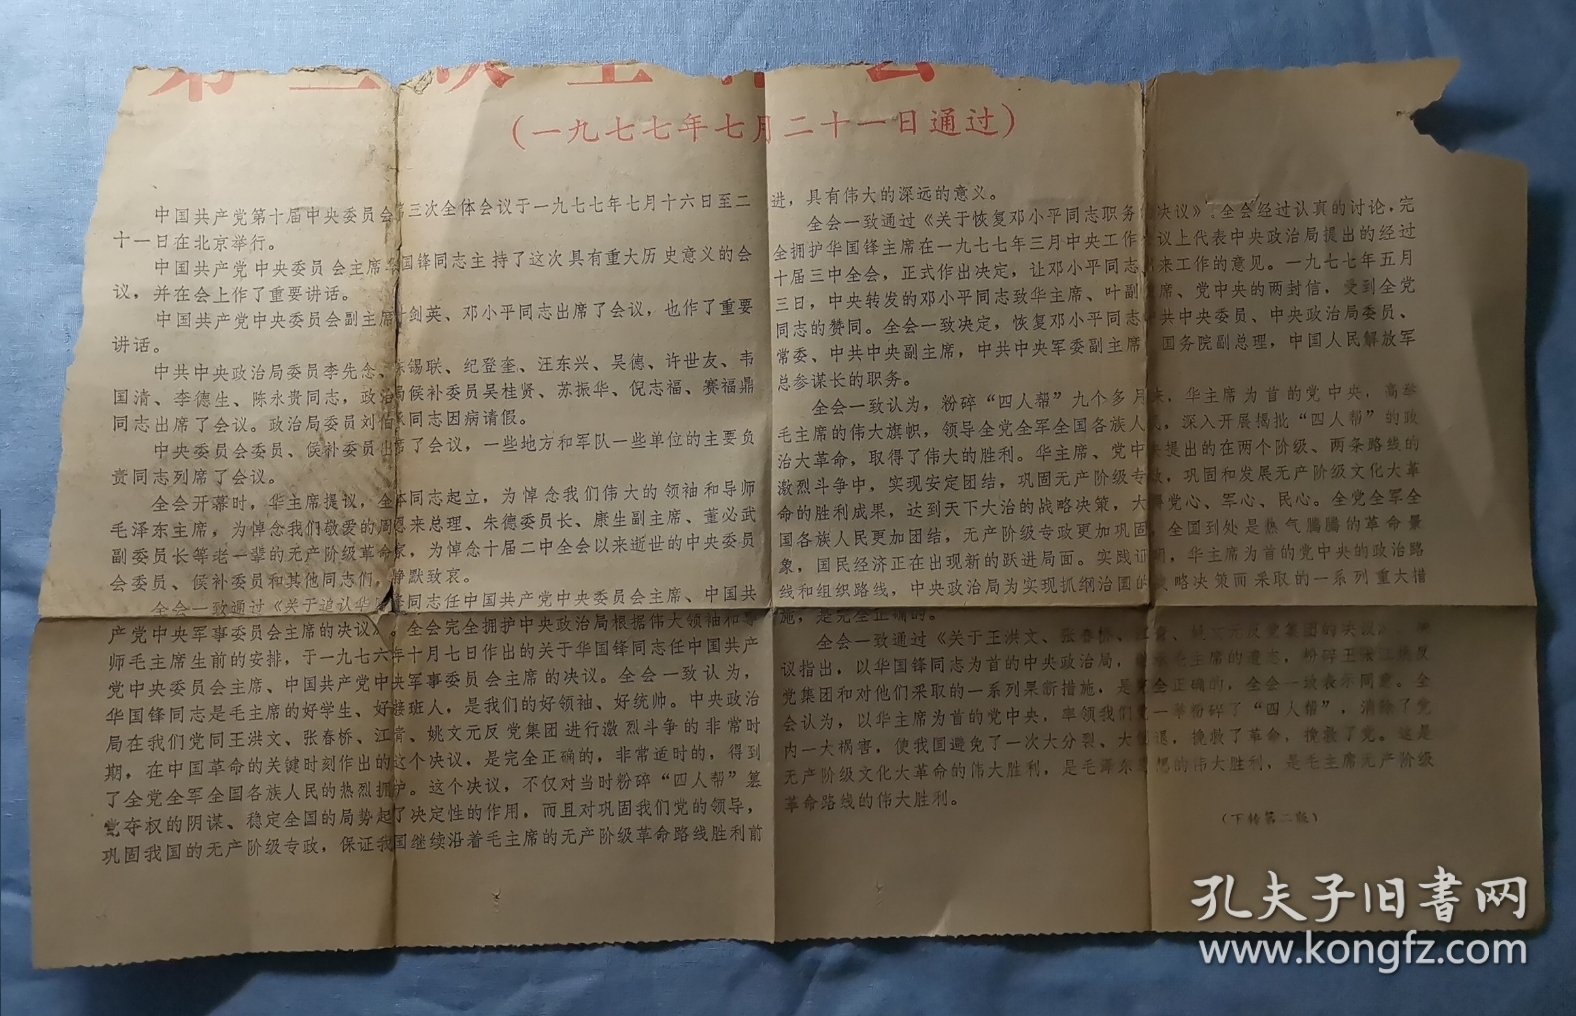 第三次全 会
（一九七七年七月二十一日通过）
中国共产党第十届中央委员会第三次全体会议于一九七七年七月十六日至二
十一日在北京举行。
中国共产党中央委员会主席华国锋同志主持了这次具有重大历史意义的会
议，并在会上作了重要讲话。
中国共产党中央委员会副主席叶剑英、邓小平同志出席了会议，也作了重要
讲话。
中共中央政治局委员李先念、陈锡联、纪登奎、汪东兴、吴德、许世友、韦
国清、李德生、陈永贵同志，政治局候补委员吴桂贤、苏振华、倪志福、赛福鼎
同志出席了会议。政治局委员刘伯承同志因病请假。
中央委员会委员、侯补委员出席了会议，一些地方和军队一些单位的主要负
责同志列席了会议。
全会开幕时，华主席提议，全体同志起立，为悼念我们伟大的领袖和导师
毛泽东主席，为悼念我们敬爱的周恩来总理、朱德委员长、康生副主席、董必武
副委员长等老一辈的无产阶级革命家，为悼念十届二中全会以来逝世的中央委员
会委员、侯补委员和其他同志们，静默致哀。
全会一致通过《关于追认华 同志任中国共产党中央委员会主席、中国共
产党中央军事委员会主席的决议》。全会完全拥护中央政治局根据伟大领袖和导
师毛主席生前的安排，于一九七六年十月七日作出的关于华国锋同志任中国共产
党中央委员会主席、中国共产党中央军事委员会主席的决议。全会一致认为，
华国锋同志是毛主席的好学生、好接班人，是我们的好领袖、好统帅。中央政治
局在我们党同王洪文、张春桥、江青、姚文元反党集团进行激烈斗争的非常时
期，在中国革命的关键时刻作出的这个决议，是完全正确的，非常适时的，得到
了全党全军全国各族人民的热烈拥护。这个决议，不仅对当时粉碎“四人帮”篡
党夺权的阴谋、稳定全国的局势起了决定性的作用，而且对巩固我们党的领导，
巩固我国的无产阶级专政，保证我国继续沿着毛主席的无产阶级革命路线胜利前
进，具有伟大的深远的意义。
全会一致通过《关于恢复邓小平同志职务的决议》。全会经过认真的讨论，完
全拥护华国锋主席在一九七七年三月中央工作会议上代表中央政治局提出的经过
十届三中全会，正式作出决定，让邓小平同志出来工作的意见。一九七七年五月
三日，中央转发的邓小平同志致华主席、叶副主席、党中央的两封信，受到全党
同志的赞同。全会一致决定，恢复邓小平同志中共中央委员、中央政治局委员、
常委、中共中央副主席，中共中央军委副主席，国务院副总理，中国人民解放军
总参谋长的职务。
全会一致认为，粉碎“四人帮”九个多月来，华主席为首的党中央，高举
毛主席的伟大旗帜，领导全党全军全国各族人民，深入开展揭批“四人帮”的政
治大革命，取得了伟大的胜利。华主席、党中央提出的在两个阶级、两条路线的
激烈斗争中，实现安定团结，巩固无产阶级专政，巩固和发展无产阶级文化大革
命的胜利成果，达到天下大治的战略决策，大得党心、军心、民心。全党全军全
国各族人民更加团结，无产阶级专政更加巩固，全国到处是热气腾腾的革命景
象，国民经济正在出现新的跃进局面。实践证明，华主席为首的党中央的政治路
线和组织路线，中央政治局为实现抓纲治国的战略决策而采取的一系列重大措
施，是完全正确的。
全会一致通过《关于王洪文、张春桥、江青、姚文元反党集团的决议》。决
议指出，以华国锋同志为首的中央政治局，继承毛主席的遗志，粉碎王张江姚反
党集团和对他们采取的一系列果断措施，是完全正确的，全会一致表示同意。全
会认为，以华主席为首的党中央，率领我们党一举粉碎了“四人帮”，清除了党
内一大祸害，使我国避免了一次大分裂、大倒退，挽救了革命，挽救了党。这是
无产阶级文化大革命的伟大胜利，是毛泽东思想的伟大胜利，是毛主席无产阶级
革命路线的伟大胜利。
（下转第二版）
孔夫子旧书网
www.kongfz.com